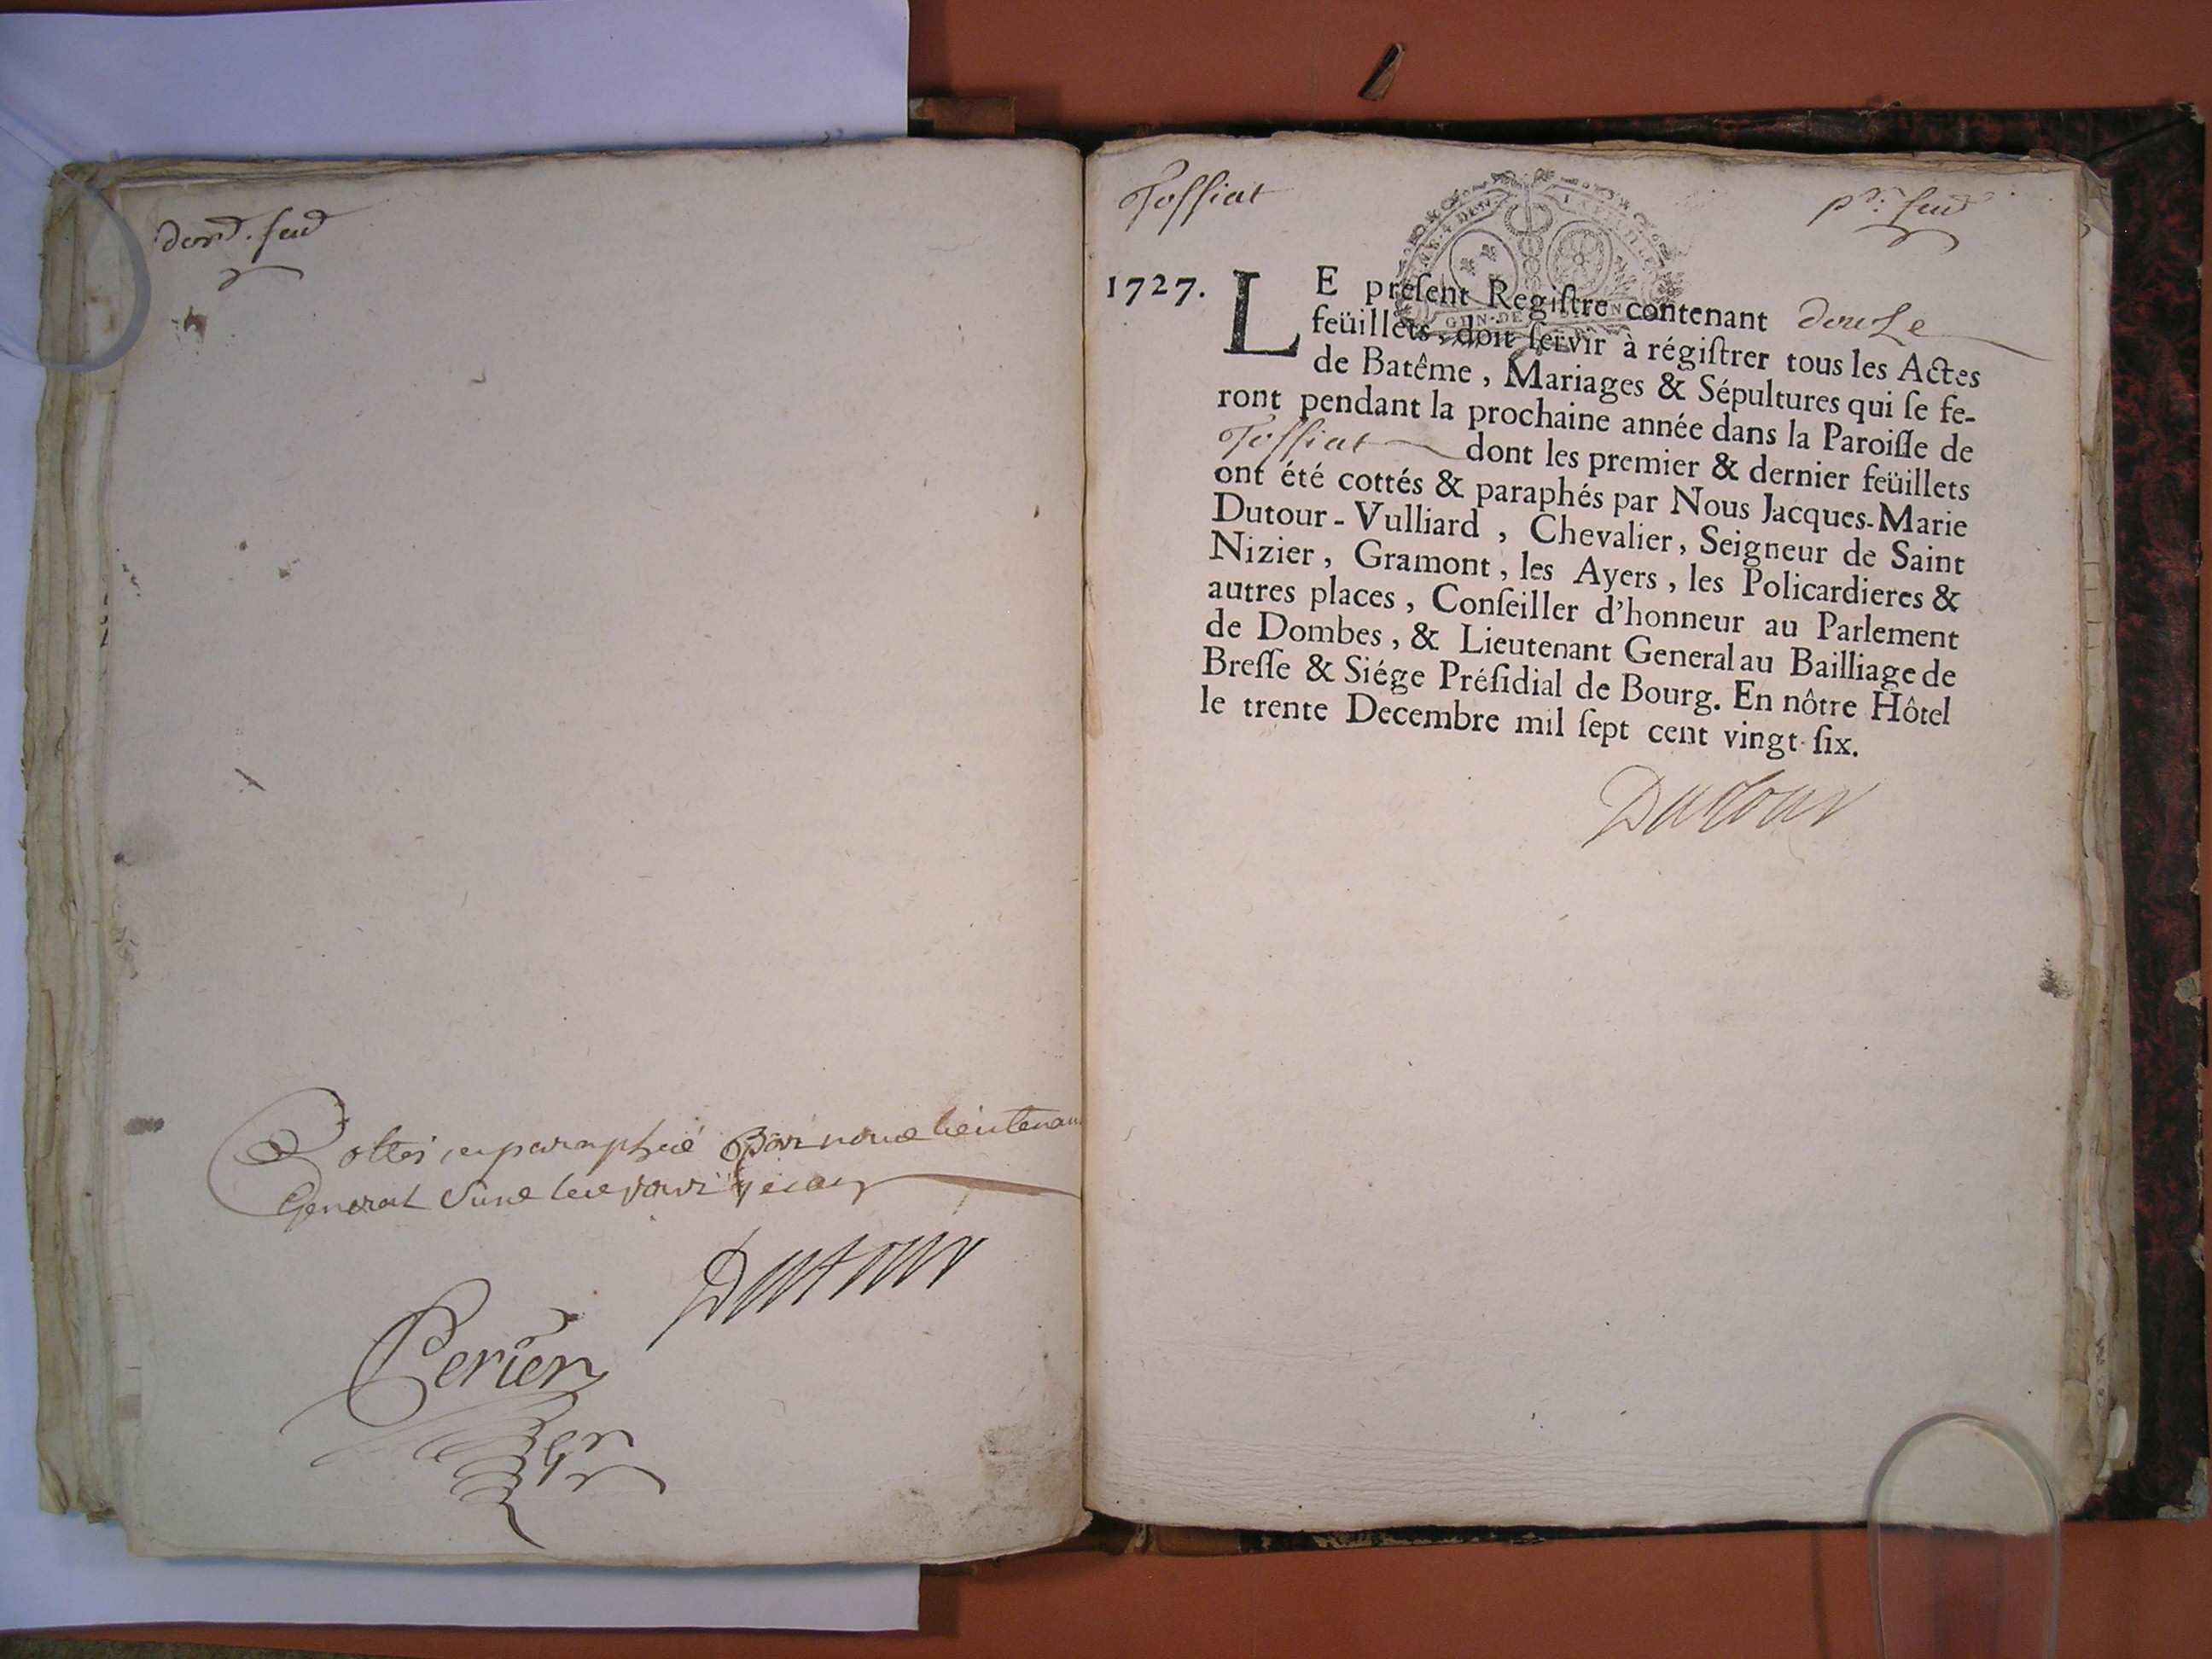 Cottés et paraphé Par nous Lieutenant
General
Dutour
Perier
Joffiat
1727.
LE preſent Regiſtre contenant douze
feüillets, doit ſervir à régiſtrer tous les Actes
de Batême, Mariages & Sépultures qui ſe fe-
ront pendant la prochaine année dans la Paroiſſe de
Joffiat dont les premier & dernier feüillets
ont été cottés & paraphés par Nous Jacques-Marie
Dutour-Vulliard, Chevalier, Seigneur de Saint
Nizier, Gramont, les Ayers, les Policardieres &
autres places, Conſeiller d'honneur au Parlement
de Dombes, & Lieutenant General au Bailliage de
Breſſe & Siége Préſidial de Bourg. En nôtre Hôtel
le trente Decembre mil ſept cent vingt-ſix.
Dutour